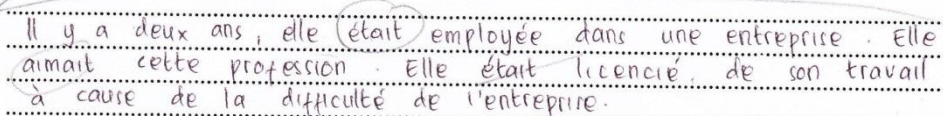 Il y a deux ans, elle était employée dans une entreprise. Elle
aimait cette profession. Elle était licencié, de son travail
à cause de la difficulté de l'entreprire.